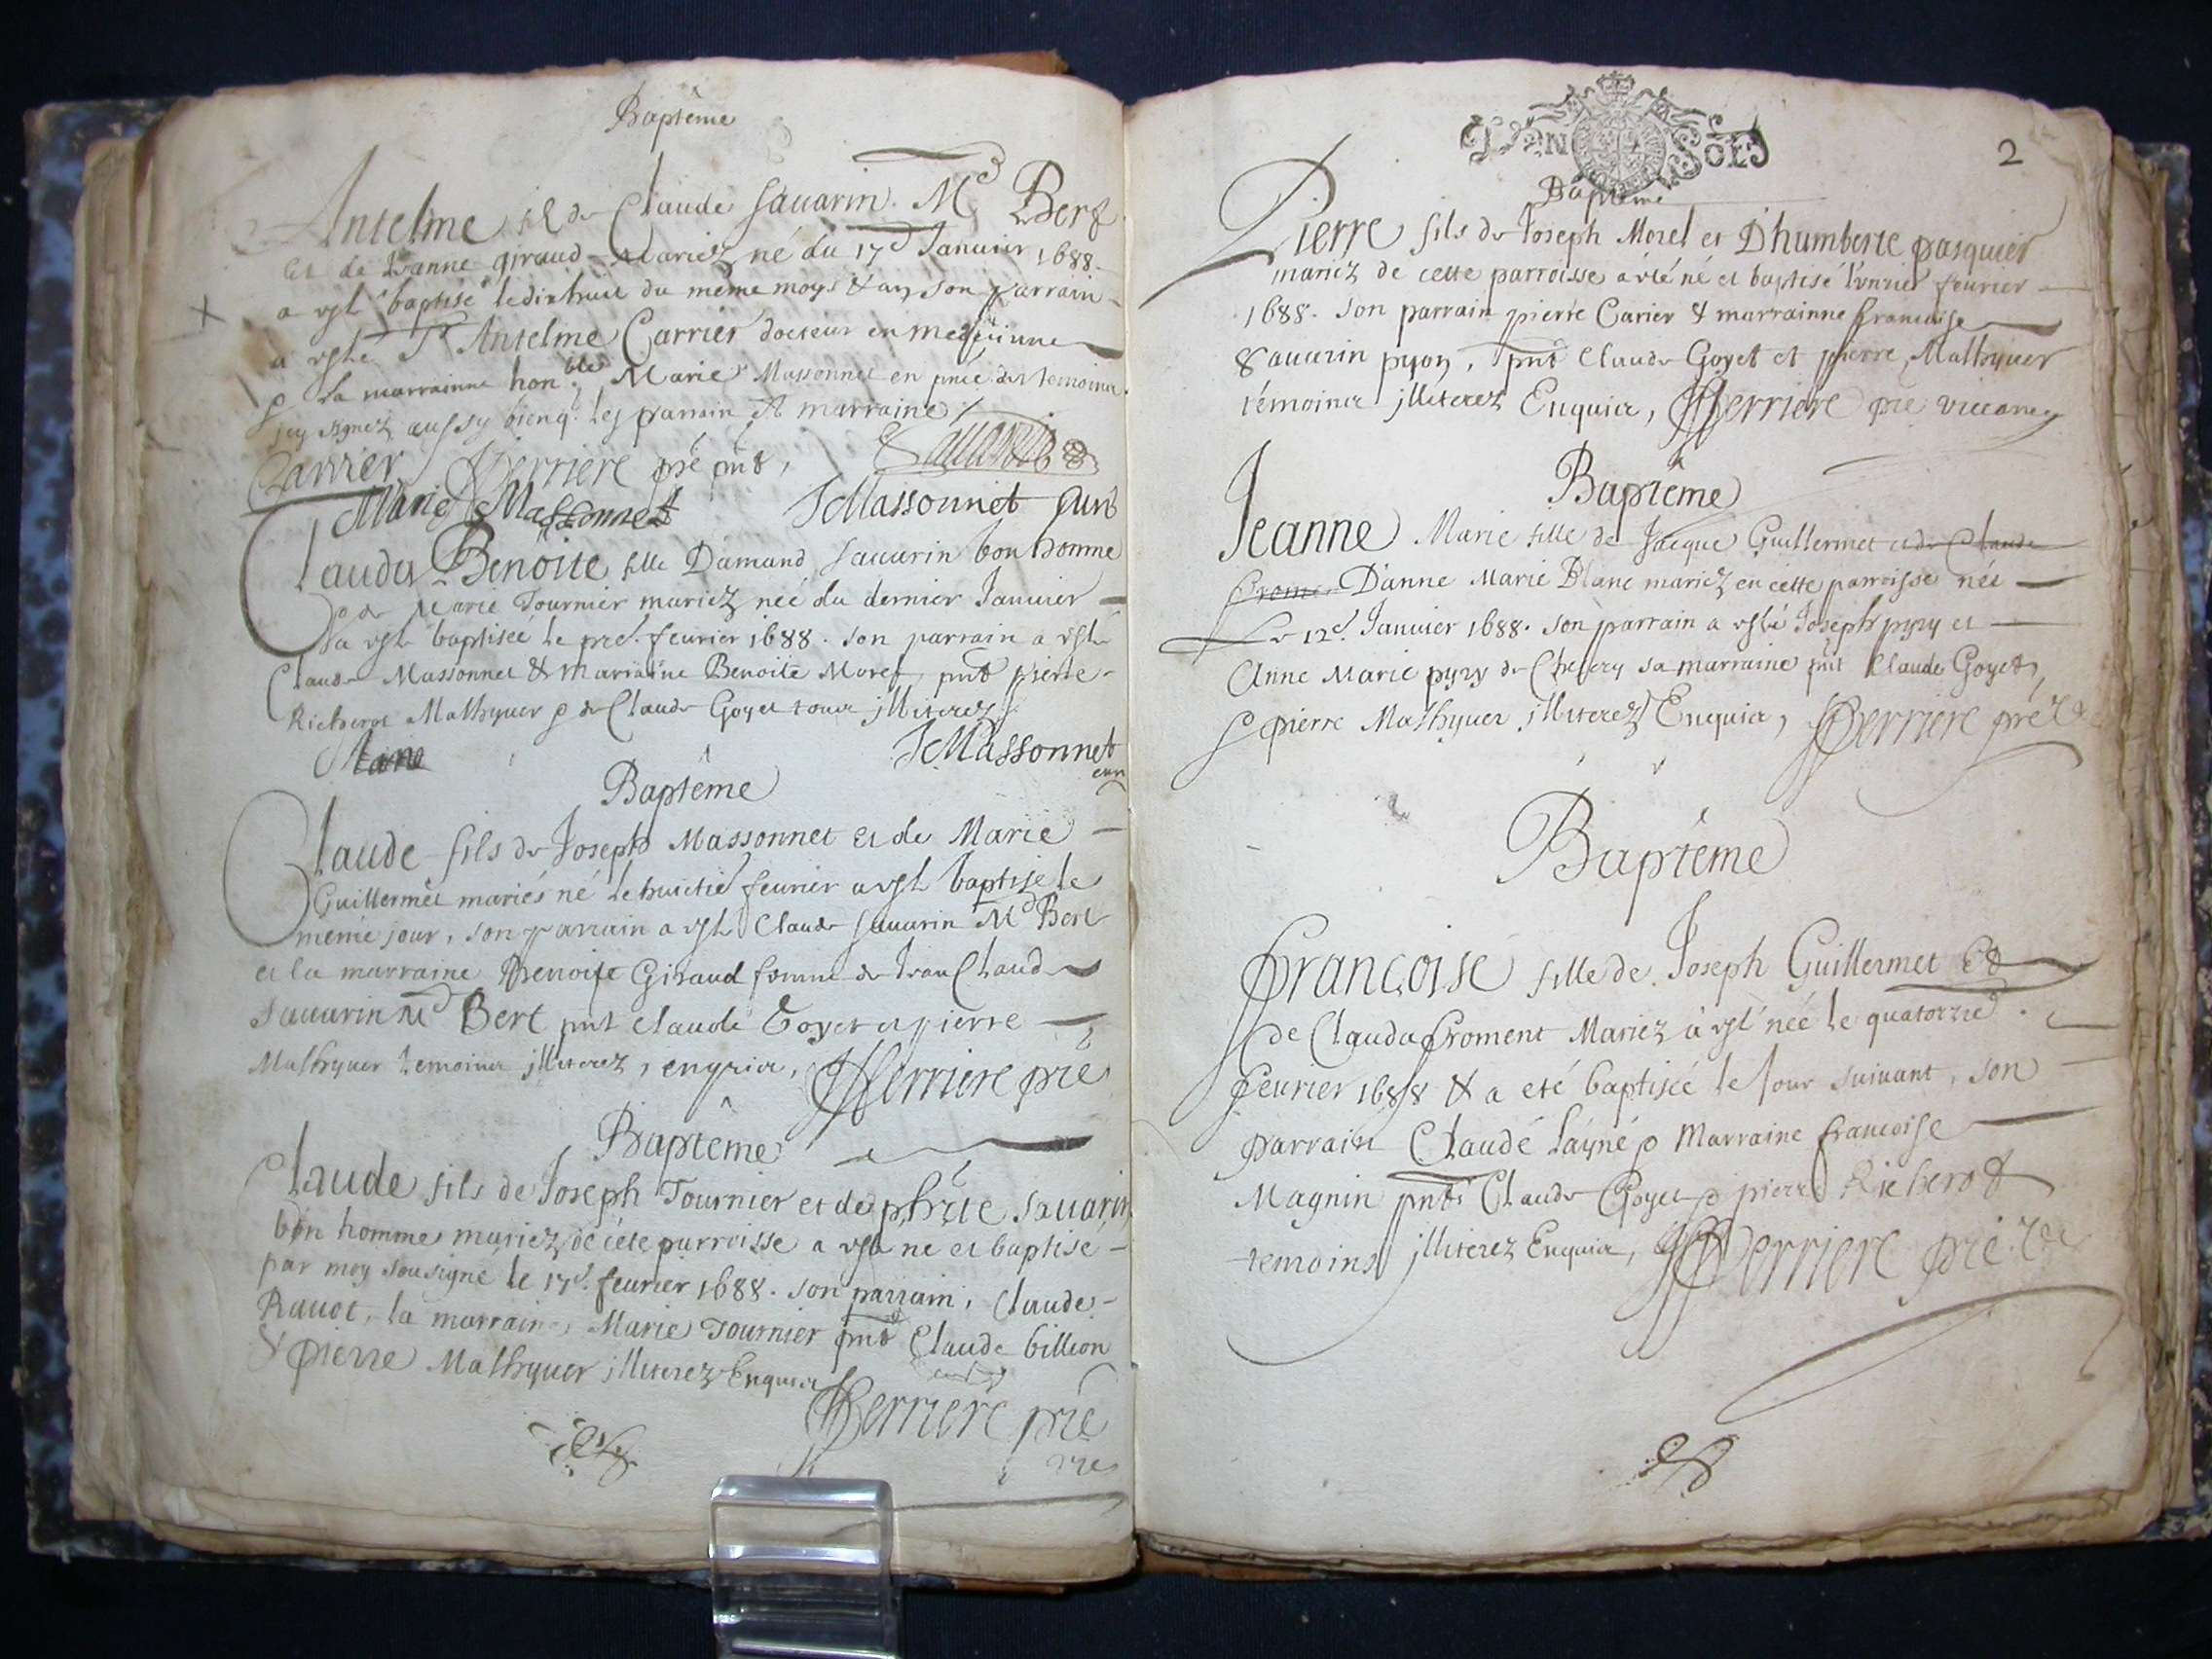 Baptême
Antelme fil de Claude savarin Md Bert
et de Jeanne giraud Mariez né du 17e Januier 1688
a esté baptisé le dixhuit du même moys & an, son parrain
a esté Sr Antelme Carrier docteur en medecinne
la marrainne honble Marie Massonnet en pnce des temoins
icy signez aussy bienq. les parrain et marraine
Carrier Perriere pre savarin
Marie Massonnet JMassonnet cure
Clauda Benoite fille Damand savarin bon homme
& de Marie Tournier mariez née du dernier Januier
a esté baptisée le pre. feurier 1688. son parrain a esté
Claude Massonnet & marraine Benoite Morel, pnt pierre
Richerot Mathyuer & de Claude Goyet tous illiterez
JMassonnet
cure
Baptême
Claude fils de Joseph Massonnet et de Marie
Guillermet mariés né le huictie feurier a esté baptizé le
même jour, son parrain a esté Claude sauarin Md Bert
et la marraine Benoite Giraud femme de Jean Claude
Sauarin Md Bert pnt Claude Goyet et pierre
Mathyuer temoins illiterez, enquis, Perriere pre
Baptême
Claude fils de Joseph Tournier et de phrte sauarin
bon homme mariez de cete parroisse a esté ne et baptisé
par moy sousigné le 17e. feurier 1688. son parrain, Claude
Rauot, la marraine Marie Tournier pnt Claude billion
& pierre Mathyuer illiterez Enquis
Perriere pre
vre
DEN SOLS
2
Baptême
Pierre fils de Joseph Morel et D'humberte pasquier
mariez de cette parroisse a été né et baptisé l'onzier feurier
1688. son parrain pierre Carier & marrainne francoise
Sauarin pyon, pnt Claude Goyet et pierre Mathyuer
témoins illiterez Enquis, Perriere pre viccaire
Baptême
Jeanne Marie fille de Jacque Guillermet et de Claude
Fromen D'anne Marie Blanc mariez en cette parroisse née
le 12e. Januier 1688. son parrain a esté Joseph pyry et
Anne Marie pyry de Chesery sa marraine pnt Claude Goyet
& pierre Mathyuer illiterez Enquis, Perriere pre
Baptême
Françoise fille de Joseph Guillermet Et
de Clauda froment Mariez a esté née le quatorzie
feurier 1688 & a eté baptisée le Jour suiuant, son
parrain Claude layné & Marraine francoise
Magnin pnts Claude Goyet & pierre Richerot
temoins illiterez Enquis, Perriere pre